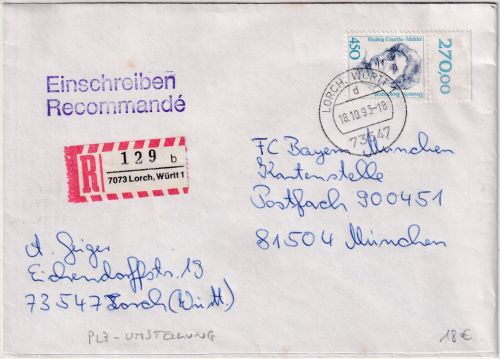 Einschreiben
Recommandé
450
Hedwig Courths-Mahler
Deutsche Bundespost
270,00
LORCH, WÜRTT
d
18.10.93-18
73547
R
129 b
7073 Lorch, Württ 1
FC Bayern München
Kartenstelle
Postfach 900451
81504 München
A. Geiger
Eichendorffstr. 19
73547 Lorch (Württ.)
PLZ-UMSTELLUNG
18€